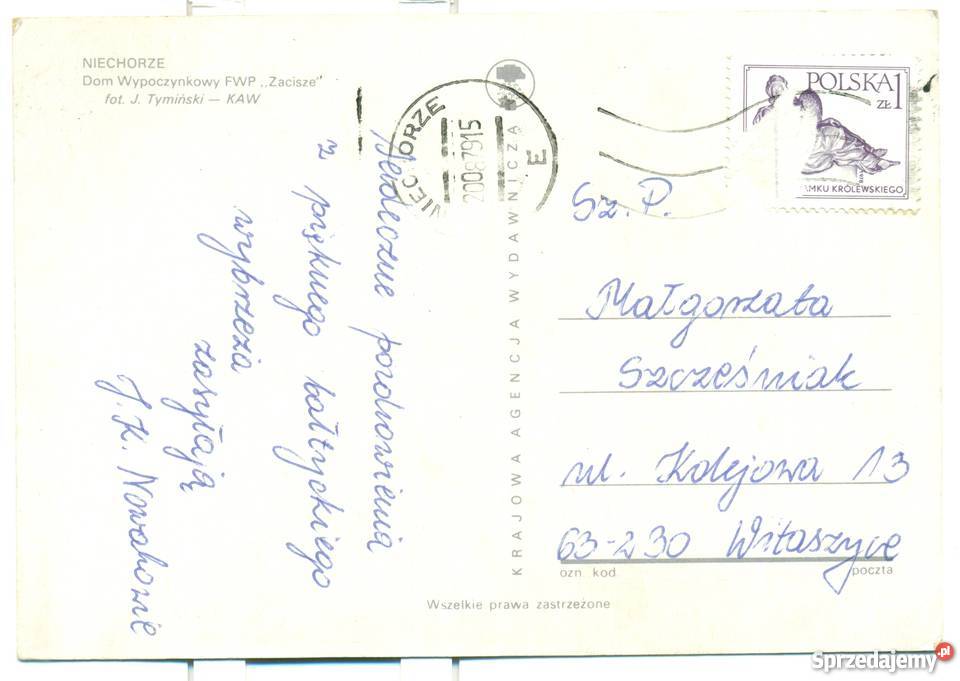 NIECHORZE
Dom Wypoczynkowy FWP „Zacisze"
fot. J. Tymiński — KAW
Serdeczne pozdrowienia
z pięknego bałtyckiego
wybrzeża
zasyłają
J. K. Nowakowie
KRAJOWA AGENCJA WYDAWNICZA
NIECHORZE
20087915
E
POLSKA 1
ZŁ
AMKU KRÓLEWSKIEGO
Sz. P.
Małgorzata
Szcześniak
ul. Kolejowa 13
63-230 Witaszyce
ozn. kod
poczta
Wszelkie prawa zastrzeżone
Sprzedajemy.pl